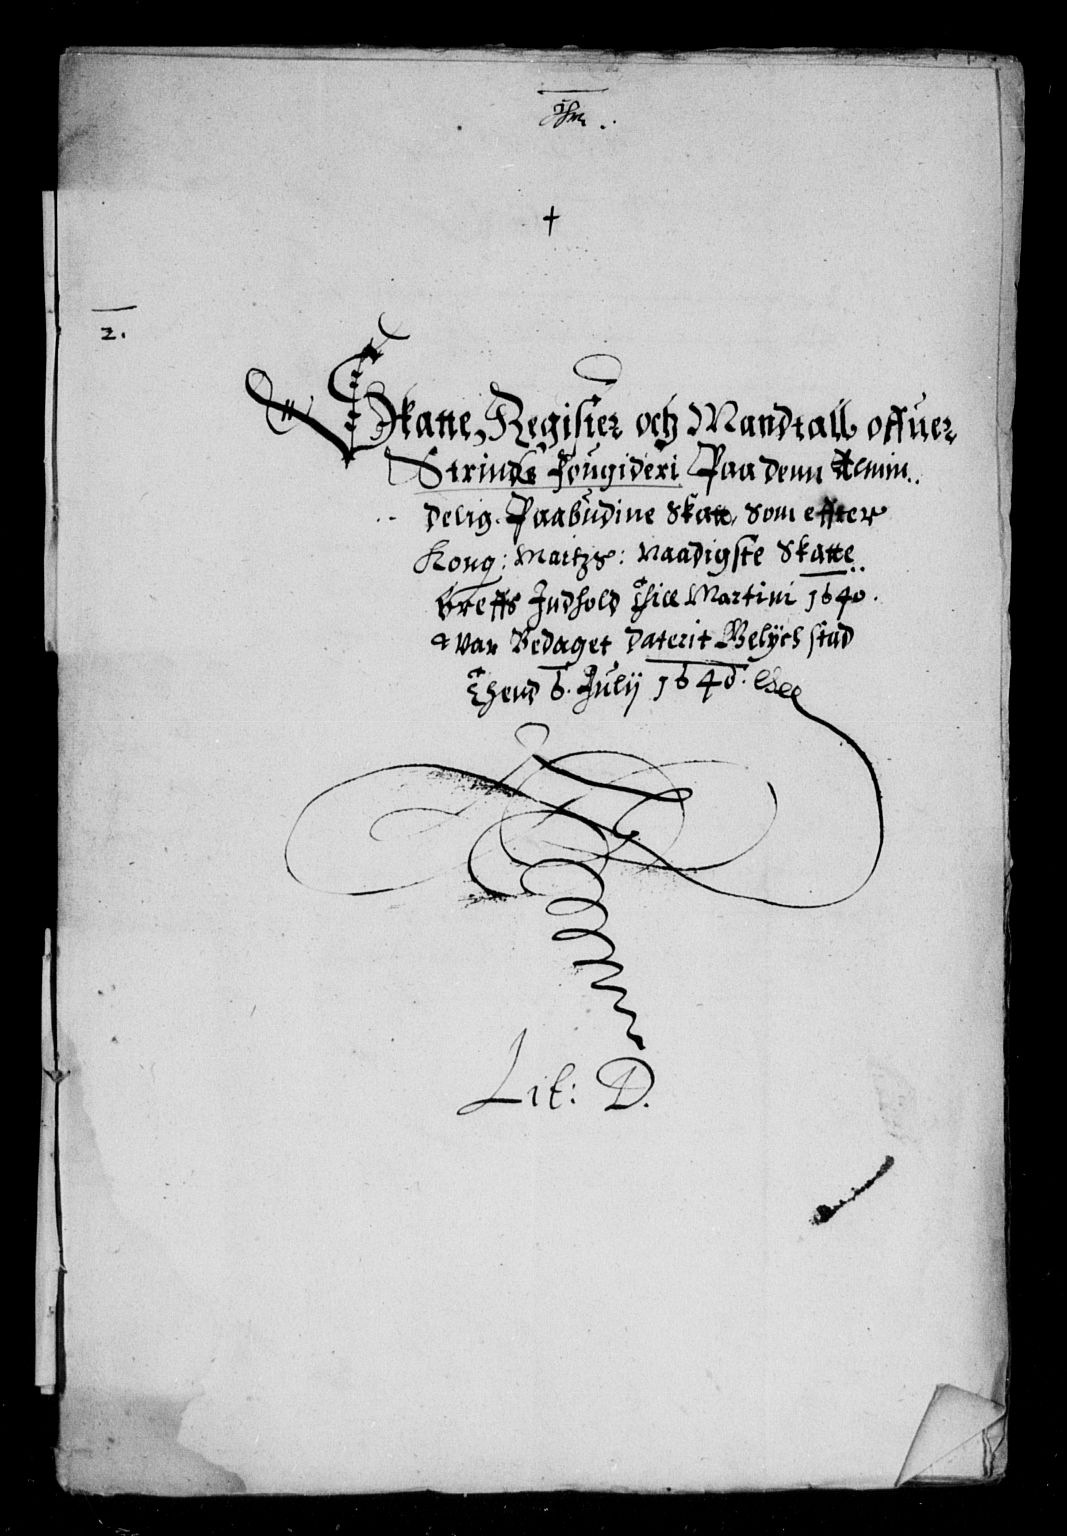 †
2.
Skatte Register och Mandtall offuer
Strinds fougideri Paa denn Almin..
delig. Paabudine Skatt, som effter
Kong: Maitzs: Naadigste Skatte..
breffs Indhold Thill Martini 1640.
War Bedaget daterit
Thend 6. Julij 1640.
Lit: D.